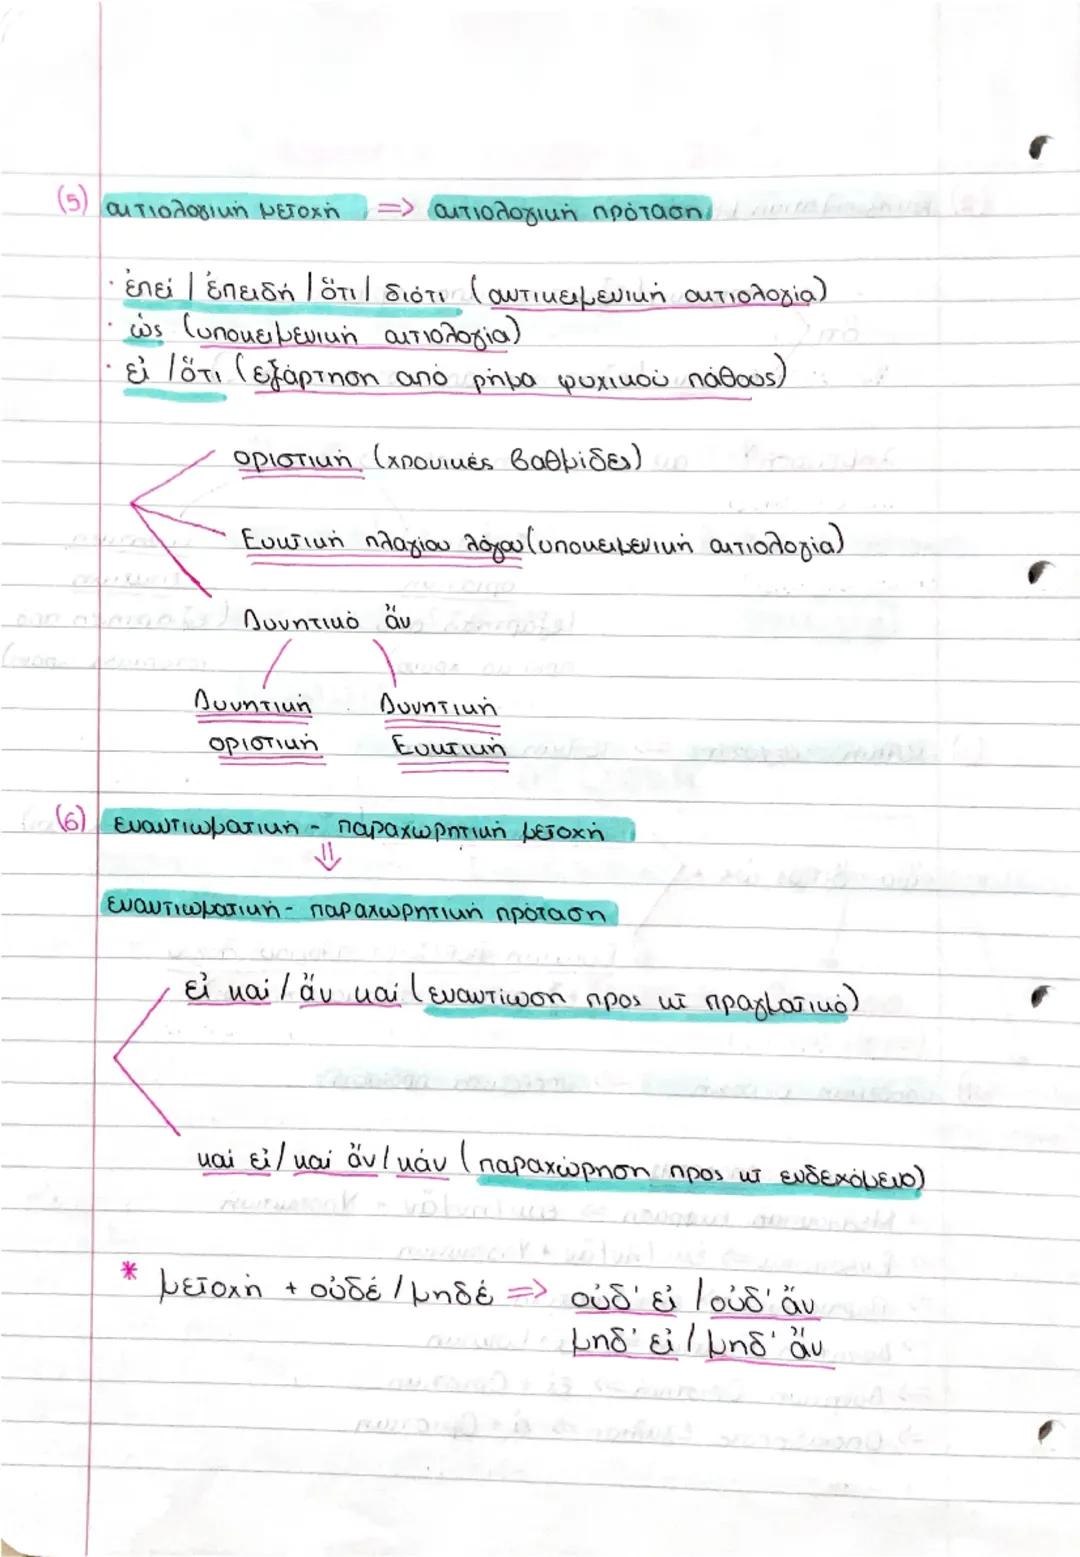 (5) αιτιολογική μετοχή => αιτιολογική πρόταση
· ἐπεί / ἐπειδή / ὅτι / διότι (αντικειμενική αιτιολογία)
· ὡς (υποκειμενική αιτιολογία)
· εἰ / ὅτι (εξάρτηση από ρήμα ψυχικού πάθους)
οριστική (χρονικές βαθμίδες)
Ευκτική πλαγίου λόγου (υποκειμενική αιτιολογία)
Δυνητικό ἄν
Δυνητική Δυνητική
οριστική Ευκτική
(6) εναντιωματική - παραχωρητική μετοχή
⇓
εναντιωματική - παραχωρητική πρόταση
εἰ καί / ἄν καί (εναντίωση προς κτ πραγματικό)
καί εἰ / καί ἄν / κἄν (παραχώρηση προς κτ ενδεχόμενο)
* μετοχή + οὐδέ / μηδέ => οὐδ' εἰ / οὐδ' ἄν
μηδ' εἰ / μηδ' ἄν